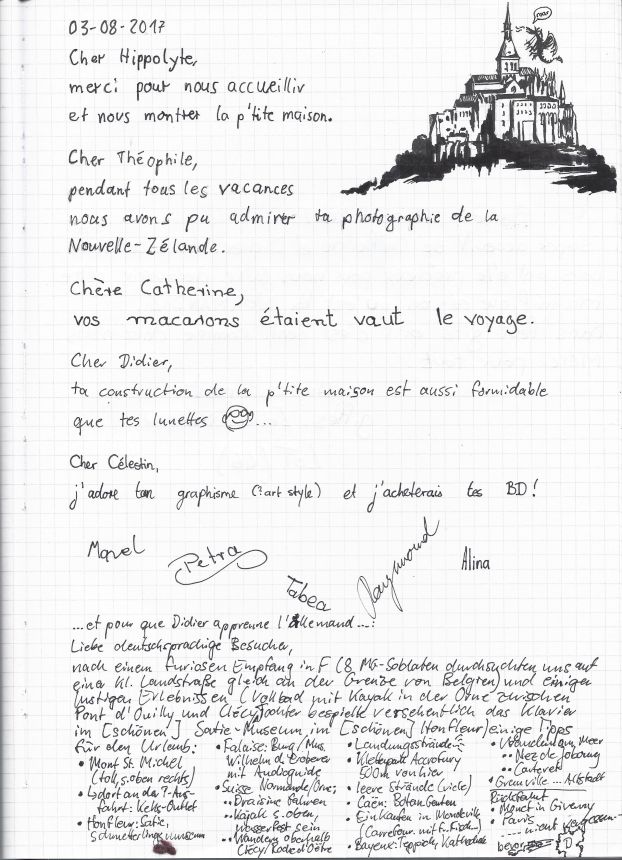 03-08-2017
Cher Hippolyte,
merci pour nous accueillir
et nous montrer la p'tite maison.
Cher Théophile,
pendant tous les vacances
nous avons pu admirer ta photographie de la
Nouvelle-Zélande.
Chère Catherine,
vos macarons étaient vaut le voyage.
Cher Didier,
ta construction de la p'tite maison est aussi formidable
que tes lunettes ...
Cher Célestin,
j'adore ton graphisme (?art style) et j'achèterais tes BD!
Petra
Tabea
Raymond
Alina
...et pour que Didier apprenne l'Allemand...:
Liebe deutschsprachige Besucher,
nach einem furiosen Empfang in F (8 MG-Soldaten durchsuchten uns auf
einer kl. Landstraße gleich an der Grenze von Belgien) und einigen
lustigen Erlebnissen (Vollbad mit Kayak in der Orne zwischen
Pont d'Ouilly und Clécy, Tochter bespielte versehentlich das Klavier
im [schönen] Satie-Museum, im [schönen] Honfleur) einige Tipps
für den Urlaub:
• Mont St. Michel
(toll, s. oben rechts)
• dort an der Aus-
fahrt: Keks-Outlet
• Honfleur: Satie,
Schmetterlingsmuseum
• Falaise: Burg/Mus.
Wilhelm d. Eroberer
mit Audioguide
• Suisse Normande/Orne:
• Draisine fahren
• Kajak s. oben,
wasserfest sein
• Wandern oberhalb
Clécy/Rode d'Oëtre
• Landungsstrände
• Kletterpark
500m von hier
• leere Strände (viele)
• Caën: Botan. Garten
• Einkaufen in Mondeville
(Carrefour mit fr. Fisch...)
• Bayeux: Teppich, Kathedrale
am Meer
•• Nez de Jobourg
•• Carteret
• Granville ... Altstadt
Rückfahrt
• Monet in Giverny
• Paris
.... nicht vergessen